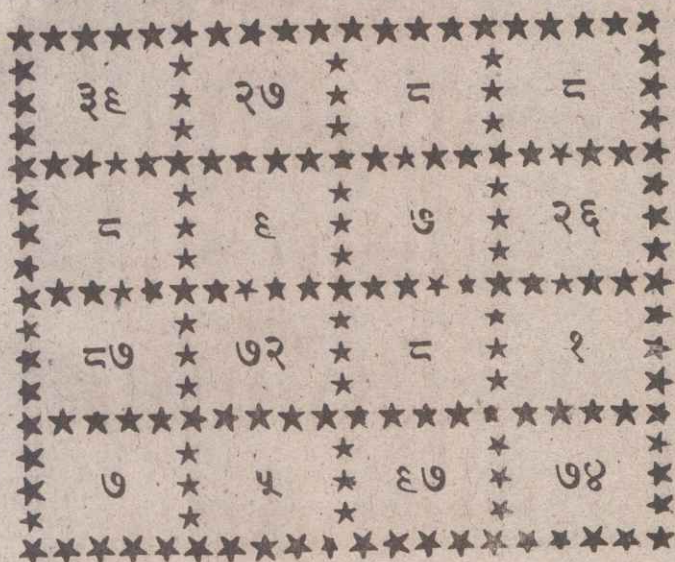 ३६ २७ ८ ८
८ ६ ७ २६
८७ ७२ ८ १
७ ५ ६७ ७४